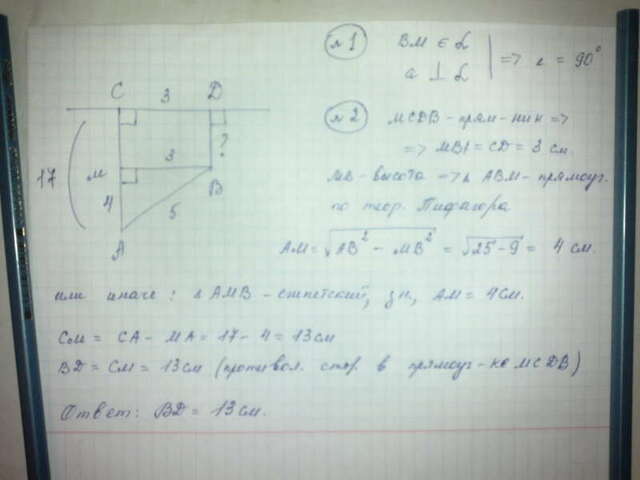 №1 BM ∈ α
a ⊥ α | => ∠ = 90°
C 3 D
17 M 3 ? B
4 5
A
№2 MCDB - прям-ник =>
=> MB = CD = 3 см.
MB - высота => Δ ABM - прямоуг.
по теор. Пифагора
AM = √AB² - MB² = √25 - 9 = 4 см.
или иначе: Δ AMB - египетский, зн., AM = 4 см.
CM = CA - MA = 17 - 4 = 13 см
BD = CM = 13 см (противол. стор. в прямоуг-ке MCDB)
Ответ: BD = 13 см.